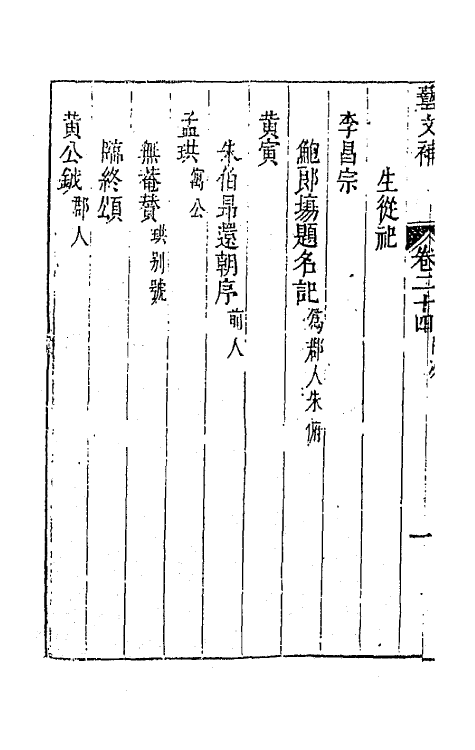 藝文補 卷二十四 一
生從祀
李昌宗
鮑郎場題名記 為郡人朱俯
黃寅
朱伯昻還朝序 前人
孟珙 寓公
無菴贊 珙别號
臨終頌
黃公鉞 郡人